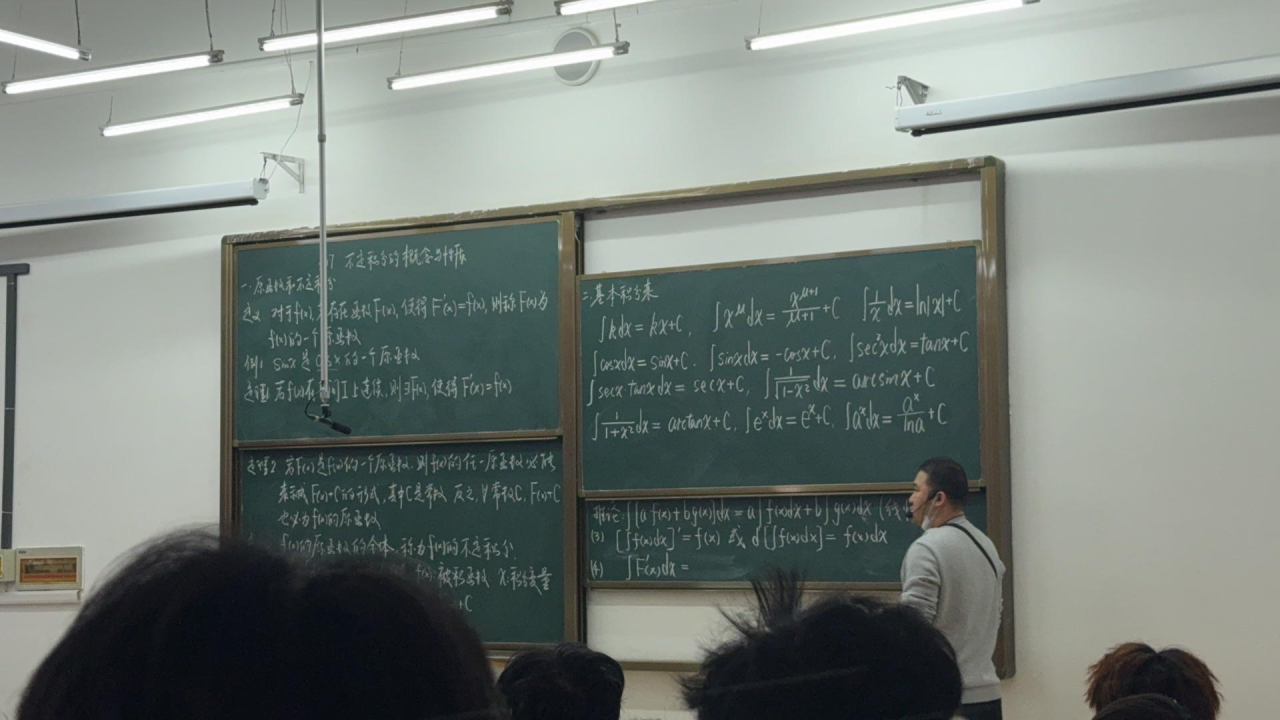 不定积分的概念与性质
一、原函数和不定积分
定义 对于f(x), 存在函数F(x), 使得 F'(x)=f(x), 则称F(x)为
f(x)的一个原函数
例: sinx是cosx的一个原函数
定理1 若f(x)在 间I上连续, 则∃F(x), 使得F'(x)=f(x)
定理2 若F(x)是f(x)的一个原函数, 则f(x)的任一原函数必能
表示成F(x)+C的形式, 其中C是常数, 反之, ∀常数C, F(x)+C
也必为f(x)的原函数
f(x)的原函数的全体, 称为f(x)的不定积分
f(x) 被积函数 x:积分变量
+C
二、基本积分表
∫kdx = kx+C, ∫x^μ dx = x^(μ+1)/(μ+1) + C ∫1/x dx = ln|x|+C
∫cosxdx = sinx+C. ∫sinxdx = -cosx+C, ∫sec²xdx = tanx+C
∫secx tanxdx = secx+C, ∫1/√(1-x²) dx = arcsinx+C
∫1/(1+x²) dx = arctanx+C, ∫e^x dx = e^x+C, ∫a^x dx = a^x/lna + C
推论: ∫[a f(x)+b g(x)]dx = a∫f(x)dx + b∫g(x)dx (线
(3) [∫f(x)dx]' = f(x) 或 d[∫f(x)dx] = f(x)dx
(4) ∫F'(x)dx =